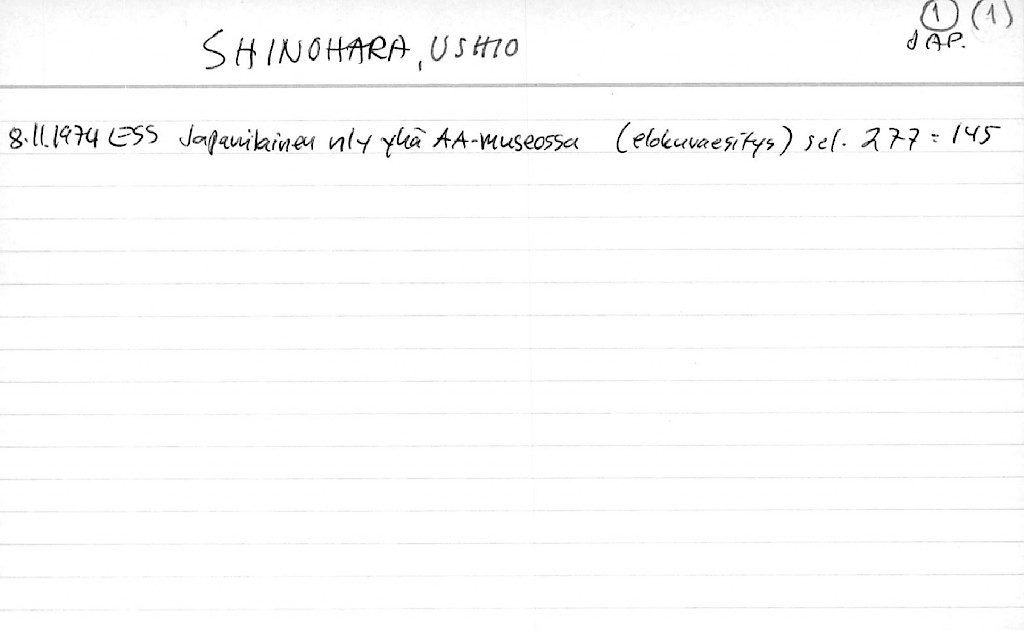 ① (1)
SHINOHARA, USHIO
JAP.
8.11.1974 ESS Japanilainen nly yhä AA-museossa (elokuvaesitys) sel. 277 = 145